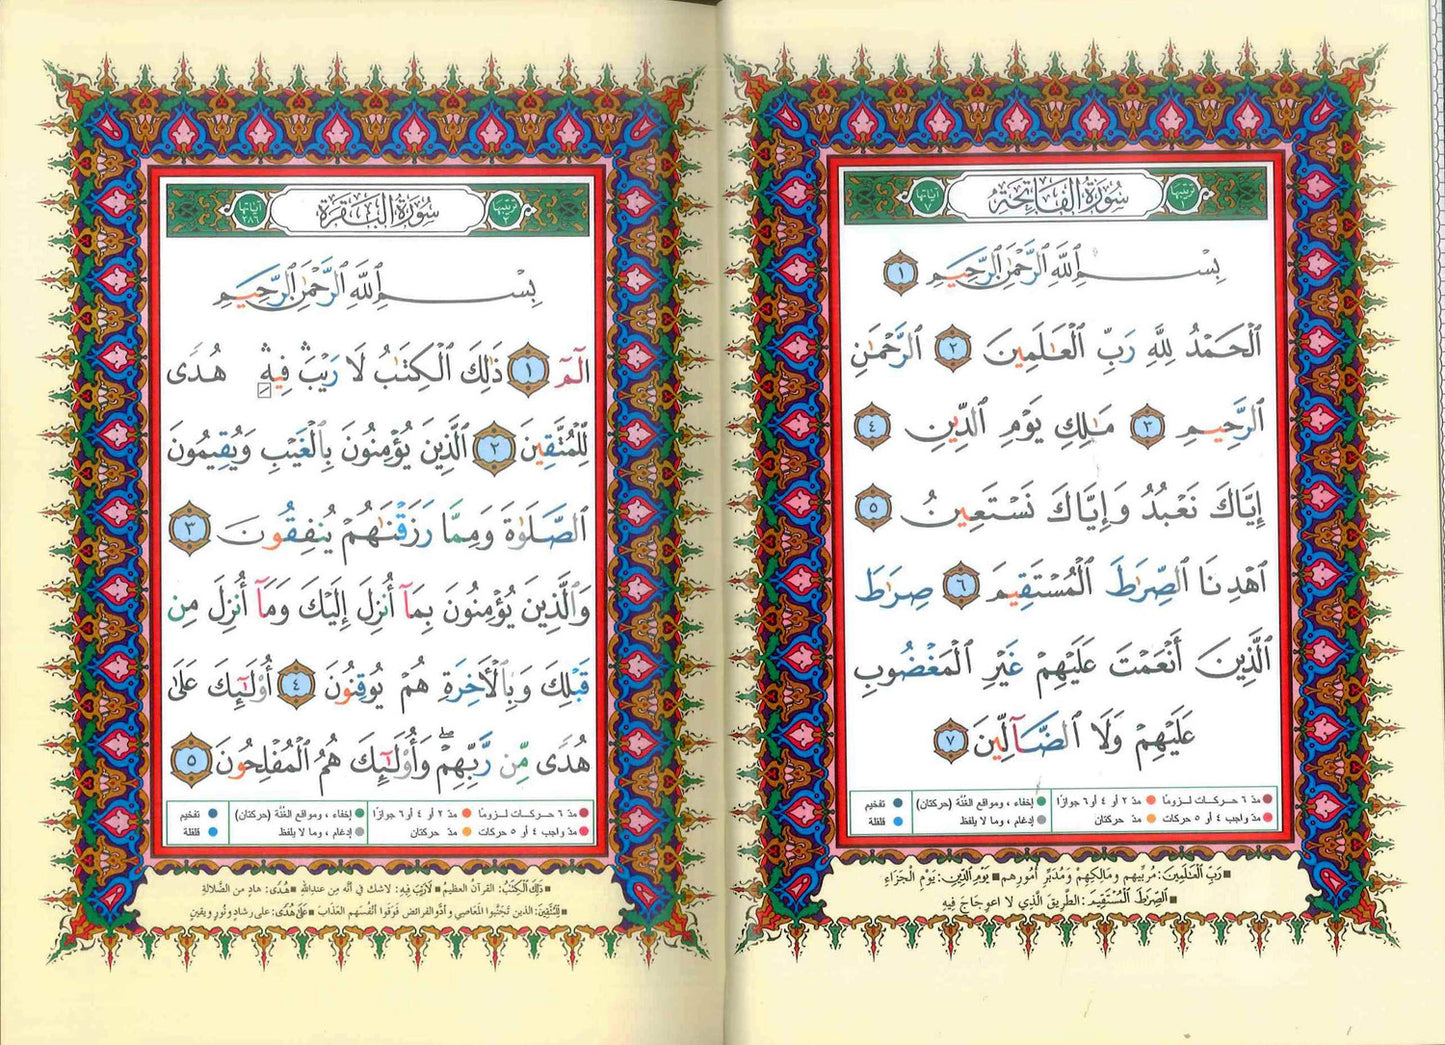 ترتيبها ١
سُورَةُ الفَاتِحَةِ
آياتها ٧
بِسْمِ ٱللَّهِ ٱلرَّحْمَٰنِ ٱلرَّحِيمِ ١
ٱلْحَمْدُ لِلَّهِ رَبِّ ٱلْعَٰلَمِينَ ٢ ٱلرَّحْمَٰنِ
ٱلرَّحِيمِ ٣ مَٰلِكِ يَوْمِ ٱلدِّينِ ٤
إِيَّاكَ نَعْبُدُ وَإِيَّاكَ نَسْتَعِينُ ٥
ٱهْدِنَا ٱلصِّرَٰطَ ٱلْمُسْتَقِيمَ ٦ صِرَٰطَ
ٱلَّذِينَ أَنْعَمْتَ عَلَيْهِمْ غَيْرِ ٱلْمَغْضُوبِ
عَلَيْهِمْ وَلَا ٱلضَّآلِّينَ ٧
مدّ ٦ حركـات لـزومًا مدّ ٢ أو ٤ أو ٦ جوازًا إخفاء، ومواقع الغُنَّة (حركتان) تفخيم
مدّ واجب ٤ أو ٥ حركات مدّ حركتان إدغام، وما لا يلفظ قلقلة
رَبِّ ٱلْعَٰلَمِينَ: مُرَبِّيهِم ومَالِكِهِمْ وَمُدَبِّرِ أُمُورِهِم يَوْمِ ٱلدِّينِ: يَوْمِ الْجَزَاءِ
ٱلصِّرَٰطَ ٱلْمُسْتَقِيمَ: الطَّرِيقَ الَّذِي لا اعوِجَاجَ فِيهِ
ترتيبها ٢
سُورَةُ البَقَرَةِ
آياتها ٢٨٦
بِسْمِ ٱللَّهِ ٱلرَّحْمَٰنِ ٱلرَّحِيمِ
الٓمٓ ١ ذَٰلِكَ ٱلْكِتَٰبُ لَا رَيْبَۛ فِيهِۛ هُدًى
لِّلْمُتَّقِينَ ٢ ٱلَّذِينَ يُؤْمِنُونَ بِٱلْغَيْبِ وَيُقِيمُونَ
ٱلصَّلَوٰةَ وَمِمَّا رَزَقْنَٰهُمْ يُنفِقُونَ ٣
وَٱلَّذِينَ يُؤْمِنُونَ بِمَآ أُنزِلَ إِلَيْكَ وَمَآ أُنزِلَ مِن
قَبْلِكَ وَبِٱلْأَخِرَةِ هُمْ يُوقِنُونَ ٤ أُو۟لَٰٓئِكَ عَلَىٰ
هُدًى مِّن رَّبِّهِمْۖ وَأُو۟لَٰٓئِكَ هُمُ ٱلْمُفْلِحُونَ ٥
مدّ ٦ حركـات لـزومًا مدّ ٢ أو ٤ أو ٦ جوازًا إخفاء، ومواقع الغُنَّة (حركتان) تفخيم
مدّ واجب ٤ أو ٥ حركات مدّ حركتان إدغام، وما لا يلفظ قلقلة
ذَٰلِكَ ٱلْكِتَٰبُ: القرآنُ العظيمُ لَا رَيْبَ فِيهِ: لاشك في أنَّه مِن عندِاللهِ هُدًى: هادٍ من الضَّلالةِ
لِّلْمُتَّقِينَ: الذين تَجَنَّبوا المَعاصي و أدَّو الفرائضَ فَوَقَوا أنْفُسَهم العَذابَ عَلَىٰ هُدًى: على رشادٍ و نُورٍ و يقينٍ